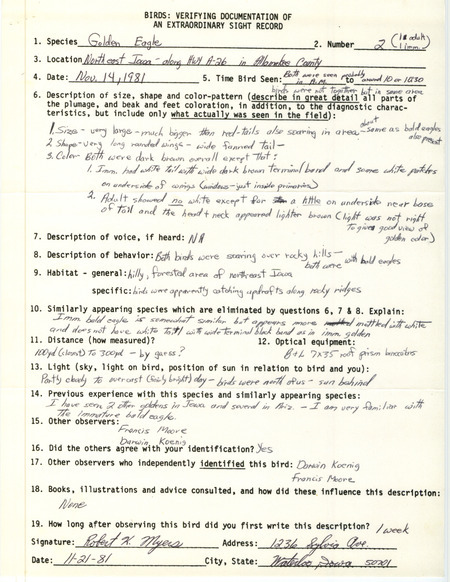 BIRDS: VERIFYING DOCUMENTATION OF
AN EXTRAORDINARY SIGHT RECORD
1. Species Golden Eagle 2. Number 2 (1 adult, 1 imm.)
3. Location Northeast Iowa - along HWY A-26 in Allamakee County
4. Date: Nov. 14, 1981 5. Time Bird Seen: Both were seen probably in A.M. to around 10 or 1030
birds were not together but in same area
6. Description of size, shape and color-pattern (describe in great detail all parts of
the plumage, and beak and feet coloration, in addition, to the diagnostic charac-
teristics, but include only what actually was seen in the field):
1. Size - very large - much bigger than red-tails also soaring in area - about same as bald eagles also present
2. Shape - very long rounded wings - wide fanned tail -
3. Color - Both were dark brown overall except that:
1. Imm. had white tail with wide dark brown terminal band and some white patches
on underside of wings (windows - just inside primaries)
2. Adult showed no white except for a little on underside near base
of tail and the head + neck appeared lighter brown (light was not right
to give good view of golden color)
7. Description of voice, if heard: NA
8. Description of behavior: Both birds were soaring over rocky hills -
both were with bald eagles
9. Habitat - general: hilly, forested area of northeast Iowa
specific: birds were apparently catching updrafts along rocky ridges
10. Similarly appearing species which are eliminated by questions 6, 7 & 8. Explain:
Imm. bald eagle is somewhat similar but appears more mottled with white
and does not have white tail with wide terminal black band as in imm. golden
11. Distance (how measured)? 12. Optical equipment:
100yd (closest) to 300yd - by guess? B+L 7X35 roof prism binoculars
13. Light (sky, light on bird, position of sun in relation to bird and you):
Partly cloudy to overcast (fairly bright) day - birds were north of us - sun behind
14. Previous experience with this species and similarly appearing species:
I have seen 2 other goldens in Iowa and several in Ariz. - I am very familiar with
the immature bald eagle.
15. Other observers:
Francis Moore
Darwin Koenig
16. Did the others agree with your identification? Yes
17. Other observers who independently identified this bird: Darwin Koenig
Francis Moore
18. Books, illustrations and advice consulted, and how did these influence this description:
None
19. How long after observing this bird did you first write this description? 1 week
Signature: Robert K. Myers Address: 1236 Sylvia Ave.
Date: 11-21-81 City, State: Waterloo, Iowa 50701